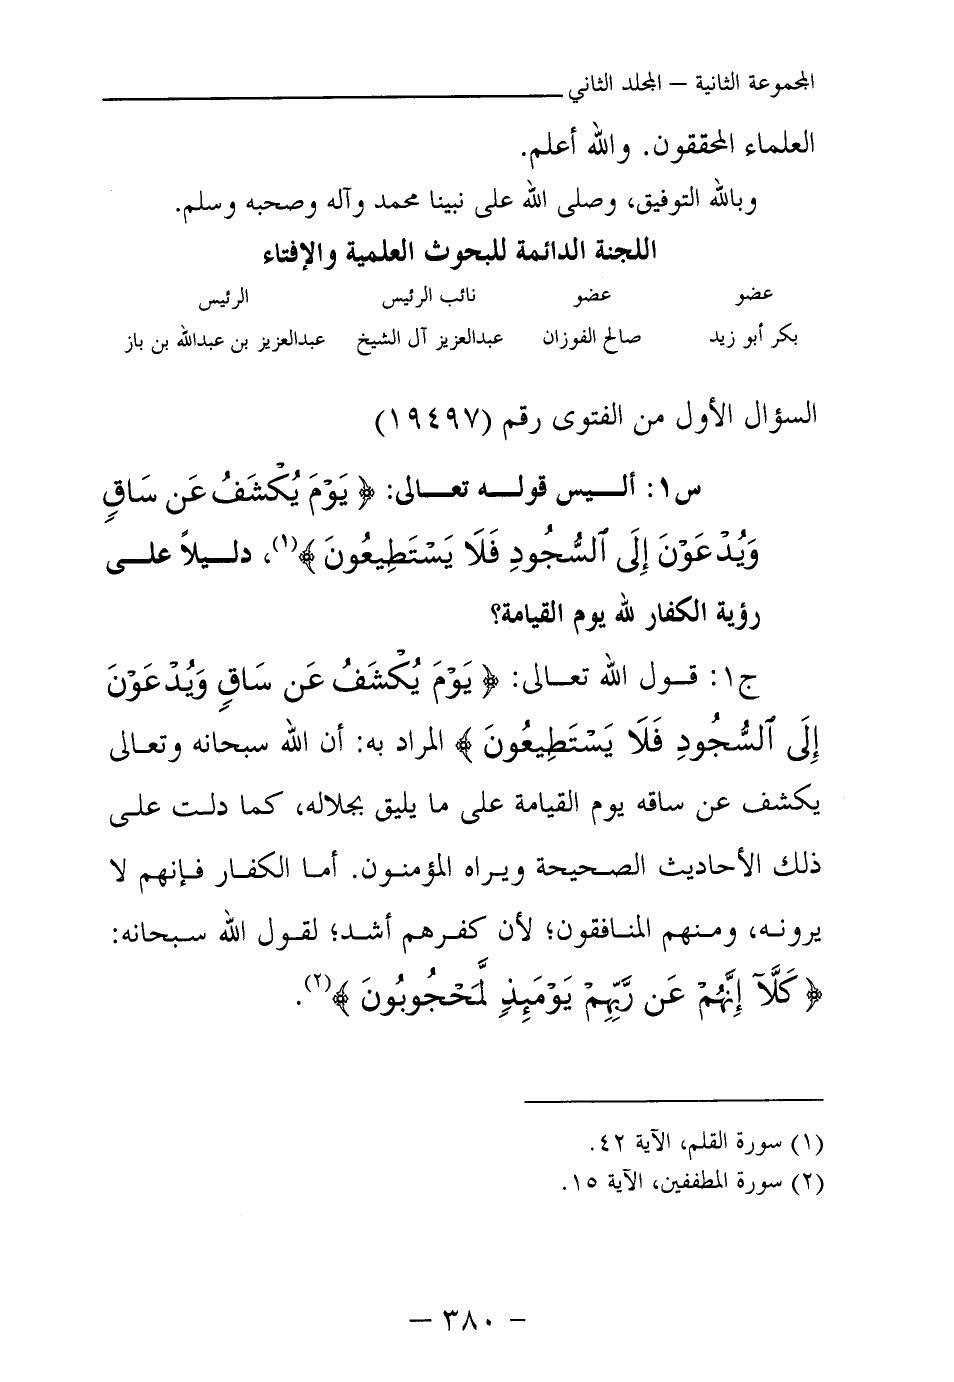 المجموعة الثانية – المجلد الثاني
العلماء المحققون. والله أعلم.
وبالله التوفيق، وصلى الله على نبينا محمد وآله وصحبه وسلم.
اللجنة الدائمة للبحوث العلمية والإفتاء
عضو عضو نائب الرئيس الرئيس
بكر أبو زيد صالح الفوزان عبدالعزيز آل الشيخ عبدالعزيز بن عبدالله بن باز
السؤال الأول من الفتوى رقم (١٩٤٩٧)
س١: أليس قوله تعالى: ﴿ يَوْمَ يُكْشَفُ عَن سَاقٍ
وَيُدْعَوْنَ إِلَى ٱلسُّجُودِ فَلَا يَسْتَطِيعُونَ ﴾(١)، دليلاً على
رؤية الكفار لله يوم القيامة؟
ج١: قول الله تعالى: ﴿ يَوْمَ يُكْشَفُ عَن سَاقٍ وَيُدْعَوْنَ
إِلَى ٱلسُّجُودِ فَلَا يَسْتَطِيعُونَ ﴾ المراد به: أن الله سبحانه وتعالى
يكشف عن ساقه يوم القيامة على ما يليق بجلاله، كما دلت على
ذلك الأحاديث الصحيحة ويراه المؤمنون. أما الكفار فإنهم لا
يرونه، ومنهم المنافقون؛ لأن كفرهم أشد؛ لقول الله سبحانه:
﴿ كَلَّآ إِنَّهُمْ عَن رَّبِّهِمْ يَوْمَئِذٍ لَّمَحْجُوبُونَ ﴾(٢).
(١) سورة القلم، الآية ٤٢.
(٢) سورة المطففين، الآية ١٥.
– ٣٨٠ –